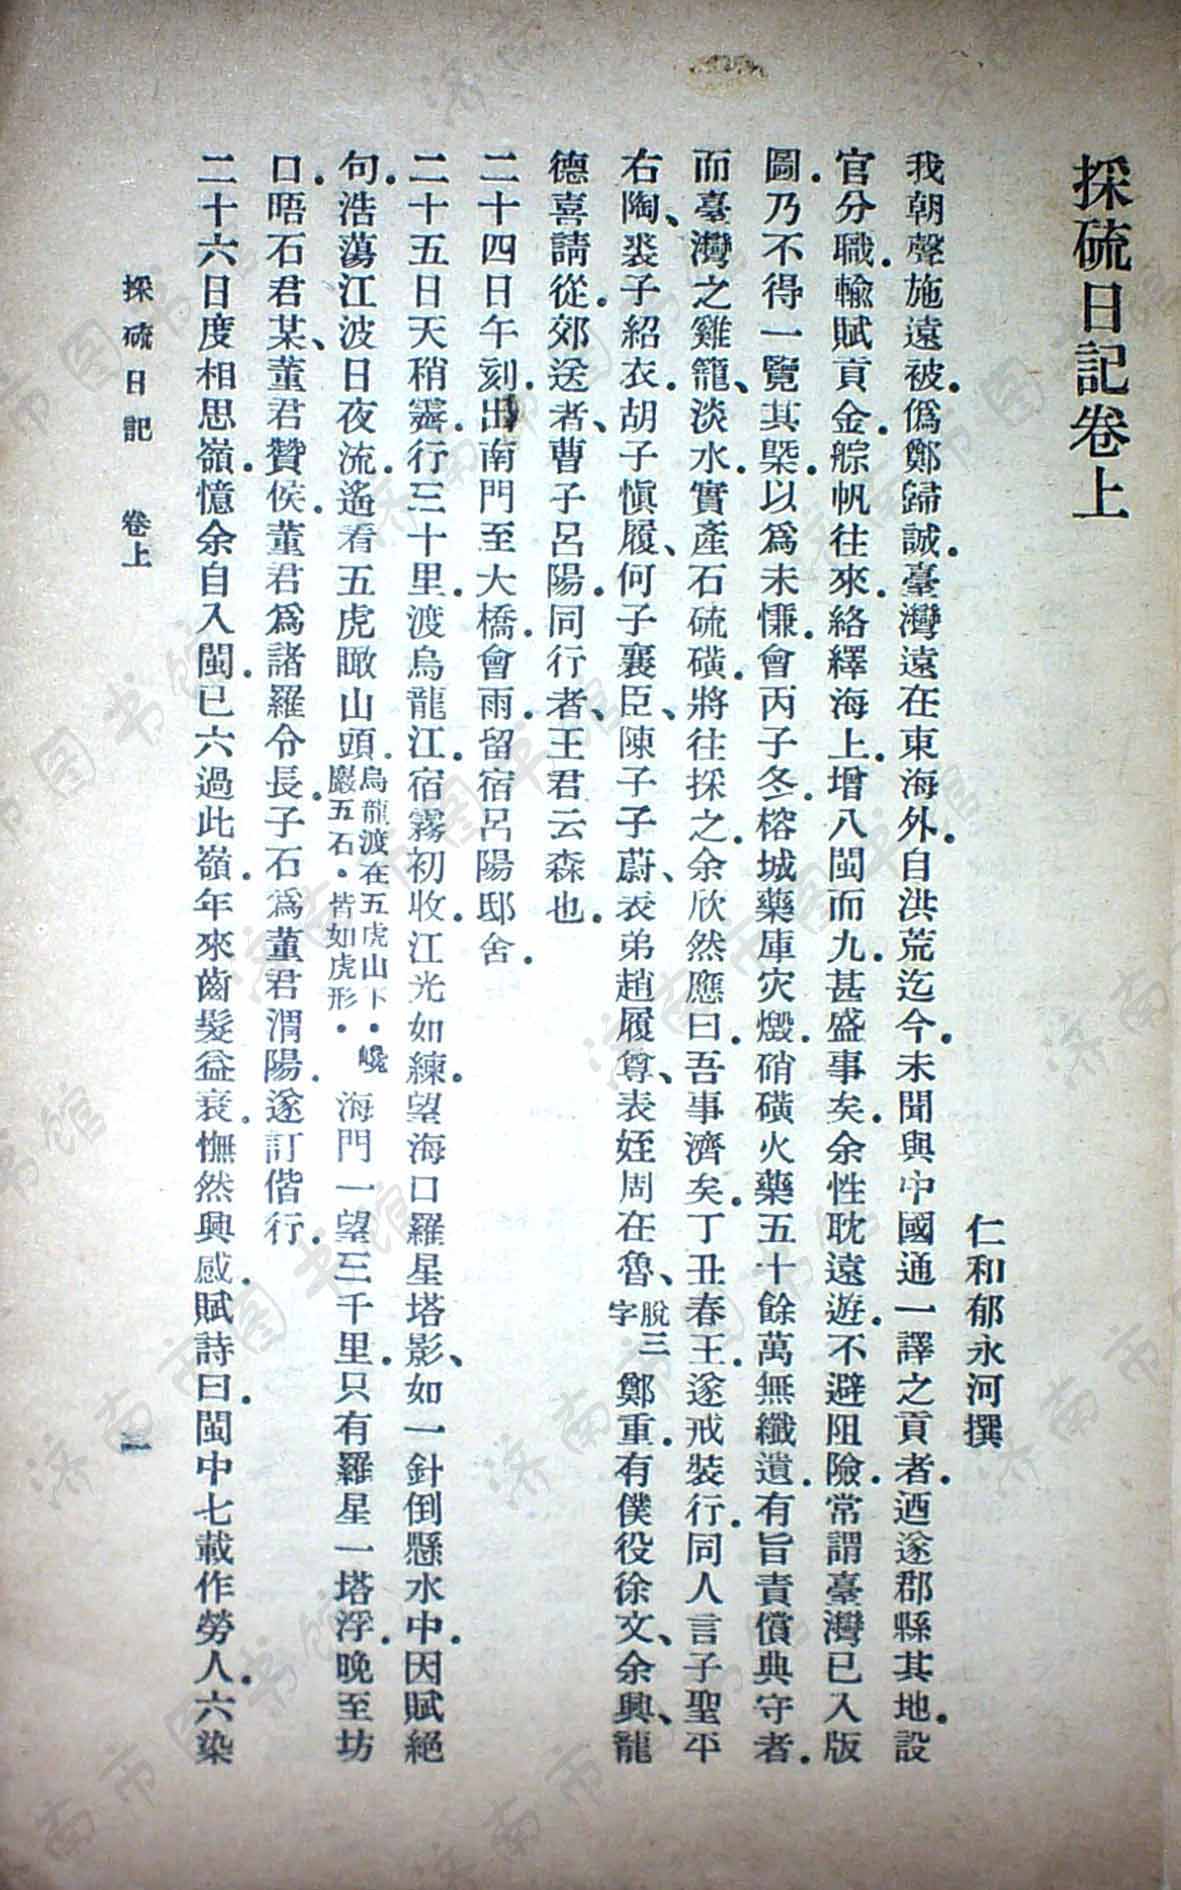 採硫日記卷上
仁和郁永河撰
我朝聲施遠被．僞鄭歸誠．臺灣遠在東海外．自洪荒迄今．未聞與中國通一譯之貢者．迺遂郡縣其地．設
官分職．輸賦貢金．艅帆往來．絡繹海上．增八閩而九．甚盛事矣．余性耽遠遊．不避阻險．常謂臺灣已入版
圖．乃不得一覽其槩．以爲未慊．會丙子冬．榕城藥庫灾燬．硝磺火藥五十餘萬無纖遺．有旨責償典守者．
而臺灣之雞籠、淡水．實產石硫磺．將往採之．余欣然應曰．吾事濟矣．丁丑春王．遂戒裝行．同人言子聖平
右陶、裘子紹衣．胡子愼履、何子襄臣、陳子子蔚、表弟趙履尊、表姪周在魯、脫三字鄭重．有僕役徐文、余興、龍
德喜請從．郊送者、曹子呂陽．同行者、王君云森也．
二十四日午刻．出南門至大橋．會雨．留宿呂陽邸舍．
二十五日天稍霽．行三十里．渡烏龍江．宿霧初收．江光如練．望海口羅星塔影、如一針倒懸水中．因賦絕
句．浩蕩江波日夜流．遙看五虎瞰山頭．烏龍渡在五虎山下．巉巖五石．皆如虎形．．海門一望三千里．只有羅星一塔浮．晚至坊
口．晤石君某、董君贊侯．董君爲諸羅令長．子石爲董君渭陽．遂訂偕行．
二十六日度相思嶺．憶余自入閩．已六過此嶺．年來齒髮益衰．憮然興感．賦詩曰．閩中七載作勞人．六染
採硫日記　卷上　一
济南市图书馆